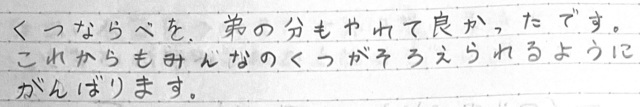 くつならべを、弟の分もやれて良かったです。
これからもみんなのくつがそろえられるように
がんばります。